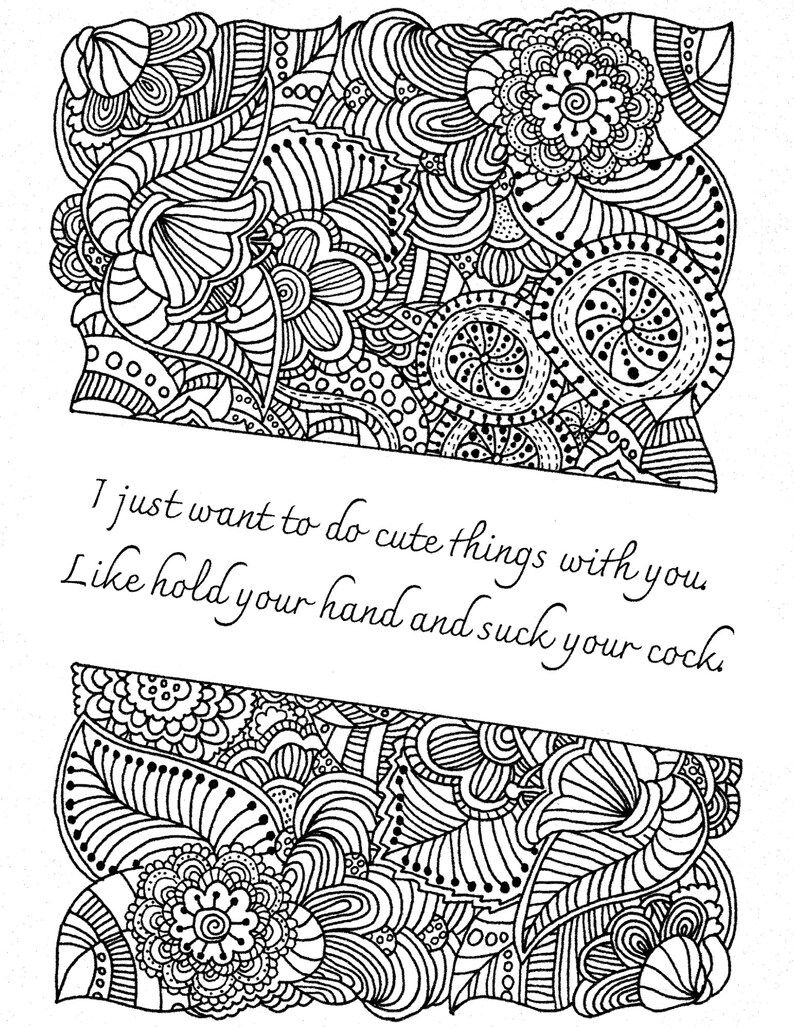 I just want to do cute things with you.
Like hold your hand and suck your cock.